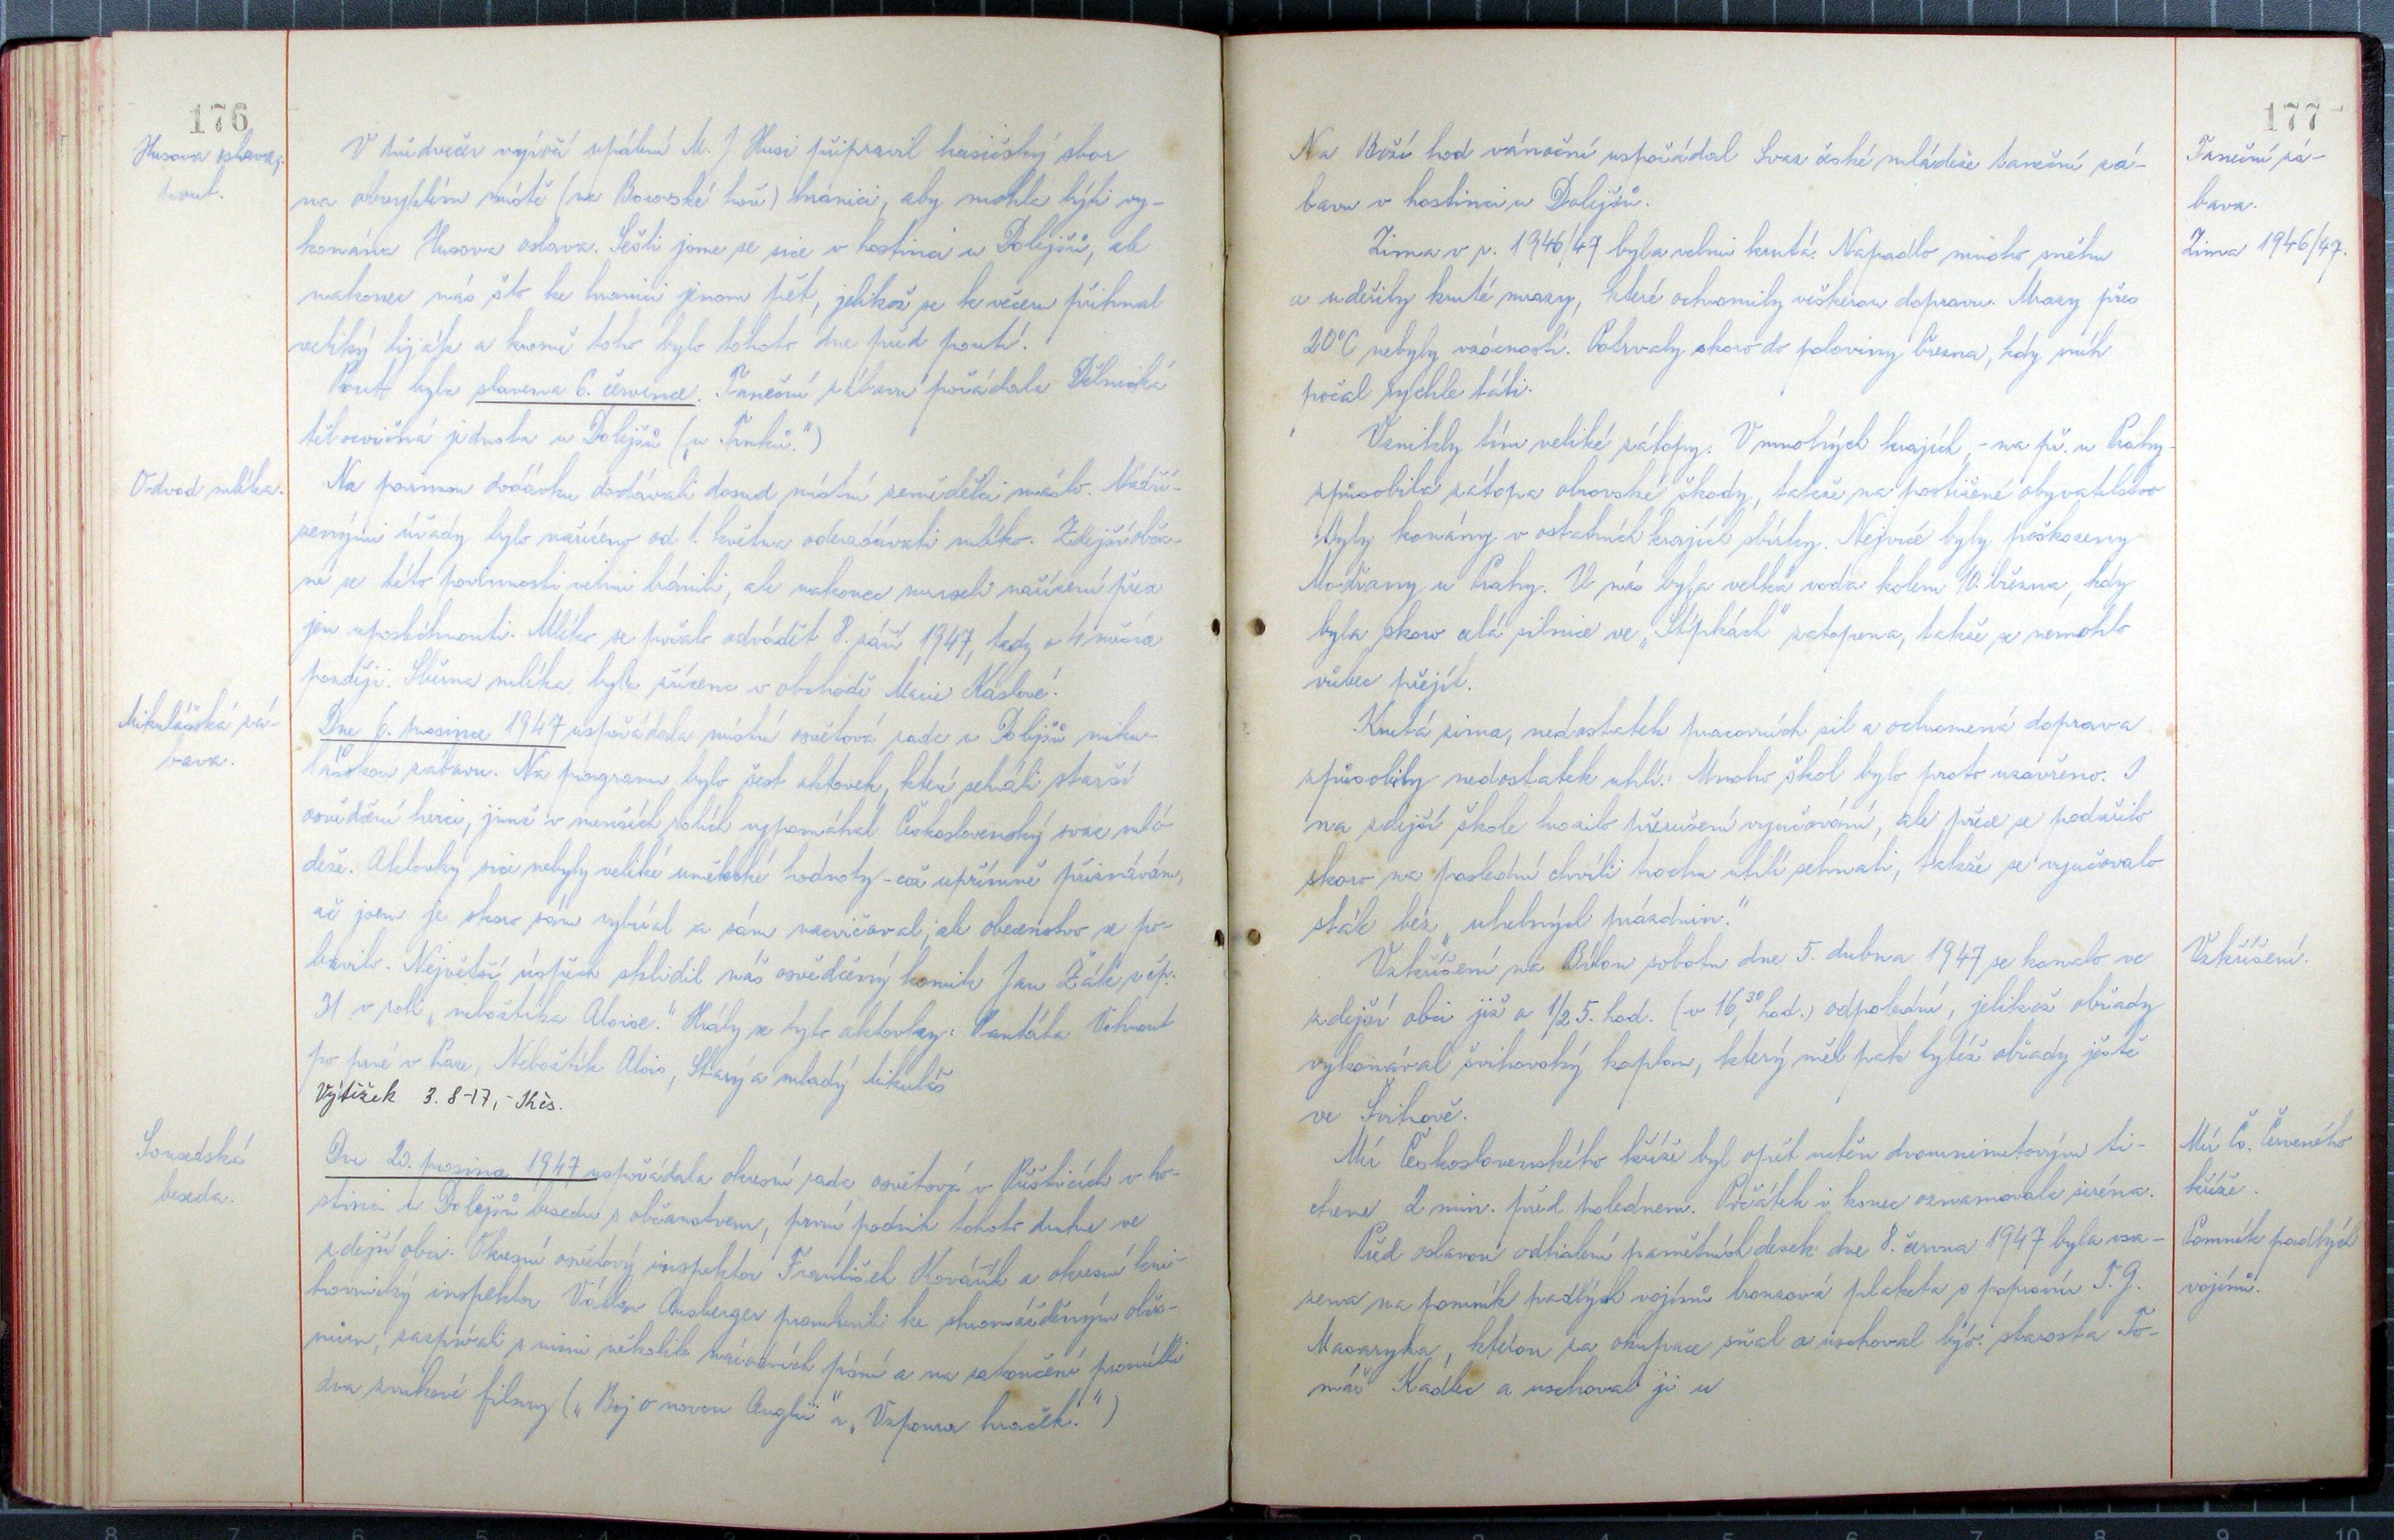 176
Husova oslava,
pouť.
V předvečer výročí upálení M. J Husi připravil hasičský sbor
na obvyklém místě (na Borovské hoře) hranici, aby mohla býti vy-
konána Husova oslava. Sešli jsme se sice v hostinci u Dolejšů, ale
nakonec nás šlo ke hranici jenom pět, jelikož se k večeru přihnal
veliký liják a kromě toho bylo tohoto dne před poutí.
Pouť byla slavena 6. července. Taneční zábavu pořádala Dělnická
tělocvičná jednota u Dolejšů („u Turků.")
Odvod mléka.
Na povinnou dodávku dodávali dosud místní zemědělci máslo. Nadří-
zenými úřady bylo nařízeno od 1. května odevzdávati mléko. Zdejší obča-
né se této povinnosti velmi bránili, ale nakonec museli nařízení přec
jen uposlechnouti. Mléko se počalo odvádět 8. září 1947, tedy o 4 měsíce
později. Sběrna mléka byla zřízena v obchodě Marie Kaslové.
Mikulášská zá-
bava.
Dne 6. prosince 1947 uspořádala místní osvětová rada u Dolejšů miku-
lášskou zábavu. Na programu bylo šest aktovek, které sehráli starší
osvědčení herci, jimž v menších rolích vypomáhal Československý svaz mlá-
deže. Aktovky sice nebyly veliké umělecké hodnoty - což upřímně přiznávám,
ač jsem je skoro sám vybíral a sám nacvičoval, ale obecenstvo se po-
bavilo. Největší úspěch sklidil náš osvědčený komik Jan Žák, z čp.
31 v roli „nebožtíka Aloise." Hrály se tyto aktovky: Pantáta Vohnout
po prvé v Praze, Nebožtík Alois, Starý a mladý Mikuláš
Výtěžek 3.817,- Kčs.
Sousedská
beseda.
Dne 20. prosince 1947 uspořádala okresní rada osvětová v Přešticích v ho-
stinci u Dolejšů besedu s občanstvem, první podnik tohoto druhu ve
zdejší obci. Okresní osvětový inspektor František Kovářík a okresní kni-
hovnický inspektor Václav promluvili ke shromážděným obča-
nům, zazpívali s nimi několik národních písní a na zakončení promítli
dva zvukové filmy („Boj o novou Anglii" a „Vzpoura hraček.")
177
Na Boží hod vánoční uspořádal Svaz české mládeže taneční zá-
bavu v hostinci u Dolejšů.
Taneční zá-
bava.
Zima v r. 1946/47 byla velmi krutá. Napadlo mnoho sněhu
a udeřily kruté mrazy, které ochromily veškerou dopravu. Mrazy přes
20°C nebyly vzácností. Potrvaly skoro do poloviny března, kdy sníh
počal rychle táti.
Zima 1946/47.
Vznikly tím veliké zátopy. V mnohých krajích, - na př. u Prahy -
způsobila zátopa obrovské škody, takže na postižené obyvatelstvo
byly konány v ostatních krajích sbírky. Nejvíce byly poškozeny
Modřany u Prahy. U nás byla velká voda kolem 10. března, kdy
byla skoro celá silnice ve „Stýpkách" zatopena, takže se nemohlo
vůbec přejít.
Krutá zima, nedostatek pracovních sil a ochromená doprava
způsobily nedostatek uhlí. Mnoho škol bylo proto uzavřeno. I
na zdejší škole hrozilo přerušení vyučování, ale přece se podařilo
skoro na poslední chvíli trochu uhlí sehnati, takže se vyučovalo
stále bez „uhelných prázdnin."
Vzkříšení na Bílou sobotu dne 5. dubna 1947 se konalo ve
zdejší obci již o 1/2 5. hod. (v 16,30 hod.) odpolední, jelikož obřady
vykonával švihovský kaplan, který měl pak tytéž obřady ještě
ve Švihově.
Vzkříšení.
Mír Československého kříže byl opět uctěn dvouminutovým ti-
chem 2 min. před polednem. Počátek i konec oznamovala siréna.
Mír Čs. Červeného
kříže.
Před oslavou odhalení pamětních desek dne 8. června 1947 byla vsa-
zena na pomník padlých vojínů bronzová plaketa s poprsím T. G.
Masaryka, kterou za okupace sňal a uschoval býv. starosta To-
máš Kádlec a uschoval ji u
Pomník padlých
vojínů.